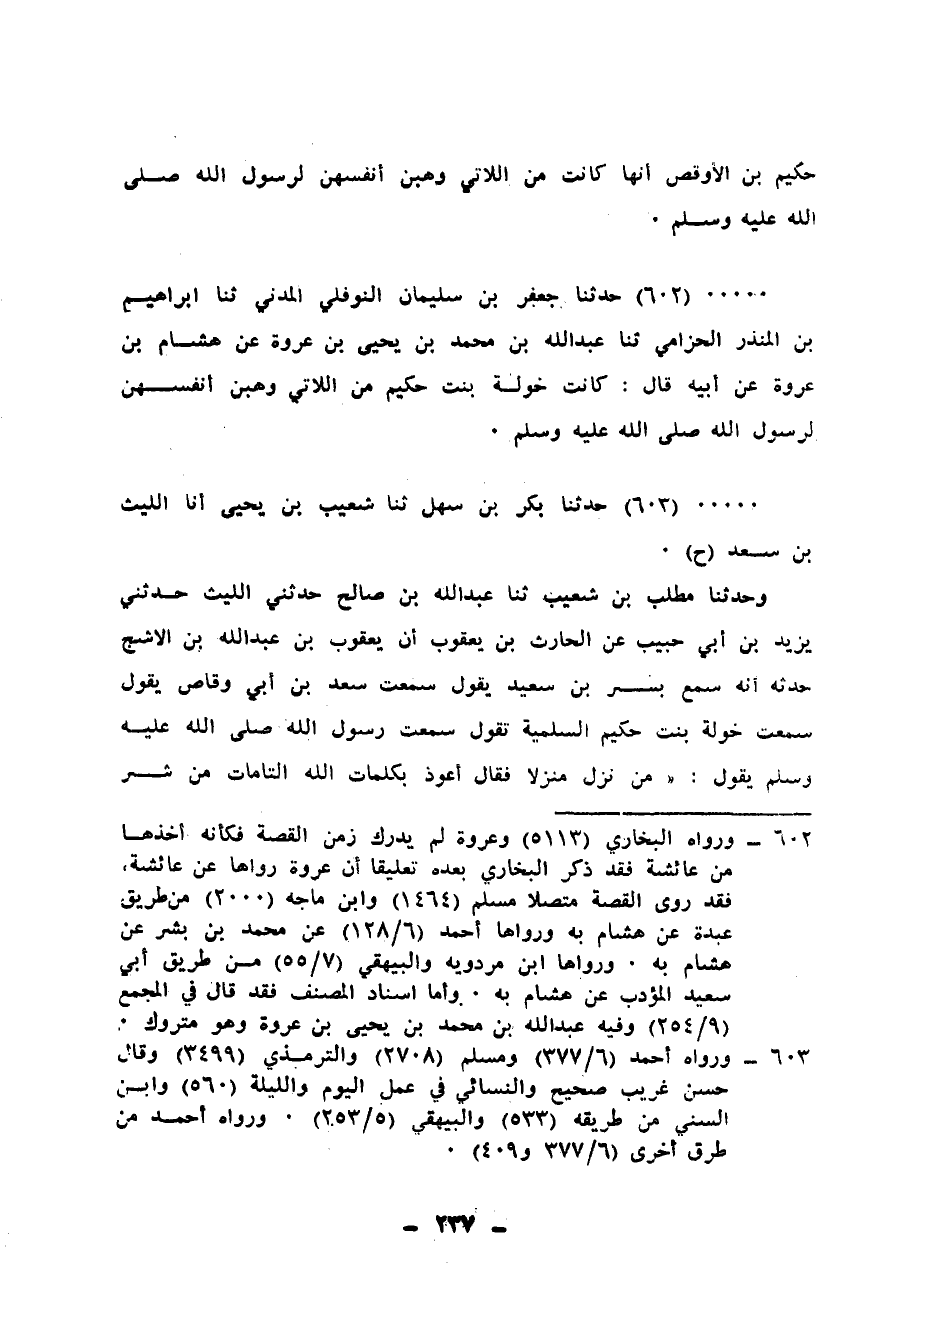 حكيم بن الأوقص أنها كانت من اللاتي وهبن أنفسهن لرسول الله صلى
الله عليه وسلم ٠
٠٠٠٠٠ (٦٠٢) حدثنا جعفر بن سليمان النوفلي المدني ثنا ابراهيم
بن المنذر الحزامي ثنا عبدالله بن محمد بن يحيى بن عروة عن هشام بن
عروة عن أبيه قال : كانت خولة بنت حكيم من اللاتي وهبن أنفسهن
لرسول الله صلى الله عليه وسلم ٠
٠٠٠٠٠ (٦٠٣) حدثنا بكر بن سهل ثنا شعيب بن يحيى أنا الليث
بن سعد (ح) ٠
وحدثنا مطلب بن شعيب ثنا عبدالله بن صالح حدثني الليث حدثني
يزيد بن أبي حبيب عن الحارث بن يعقوب أن يعقوب بن عبدالله بن الاشج
حدثه أنه سمع بسر بن سعيد يقول سمعت سعد بن أبي وقاص يقول
سمعت خولة بنت حكيم السلمية تقول سمعت رسول الله صلى الله عليه
وسلم يقول : « من نزل منزلا فقال أعوذ بكلمات الله التامات من شر
٦٠٢ ــ ورواه البخاري (٥١١٣) وعروة لم يدرك زمن القصة فكأنه أخذها
من عائشة فقد ذكر البخاري بعده تعليقا أن عروة رواها عن عائشة،
فقد روى القصة متصلا مسلم (١٤٦٤) وابن ماجه (٢٠٠٠) من طريق
عبدة عن هشام به ورواها أحمد (١٢٨/٦) عن محمد بن بشر عن
هشام به ٠ ورواها ابن مردويه والبيهقي (٥٥/٧) من طريق أبي
سعيد المؤدب عن هشام به ٠ وأما اسناد المصنف فقد قال في المجمع
(٢٥٤/٩) وفيه عبدالله بن محمد بن يحيى بن عروة وهو متروك ٠
٦٠٣ ــ ورواه أحمد (٣٧٧/٦) ومسلم (٢٧٠٨) والترمذي (٣٤٩٩) وقال
حسن غريب صحيح والنسائي في عمل اليوم والليلة (٥٦٠) وابن
السني من طريقه (٥٣٣) والبيهقي (٢٥٣/٥) ٠ ورواه أحمد من
طرق أخرى (٣٧٧/٦ و٤٠٩) ٠
ــ ٢٣٧ ــ